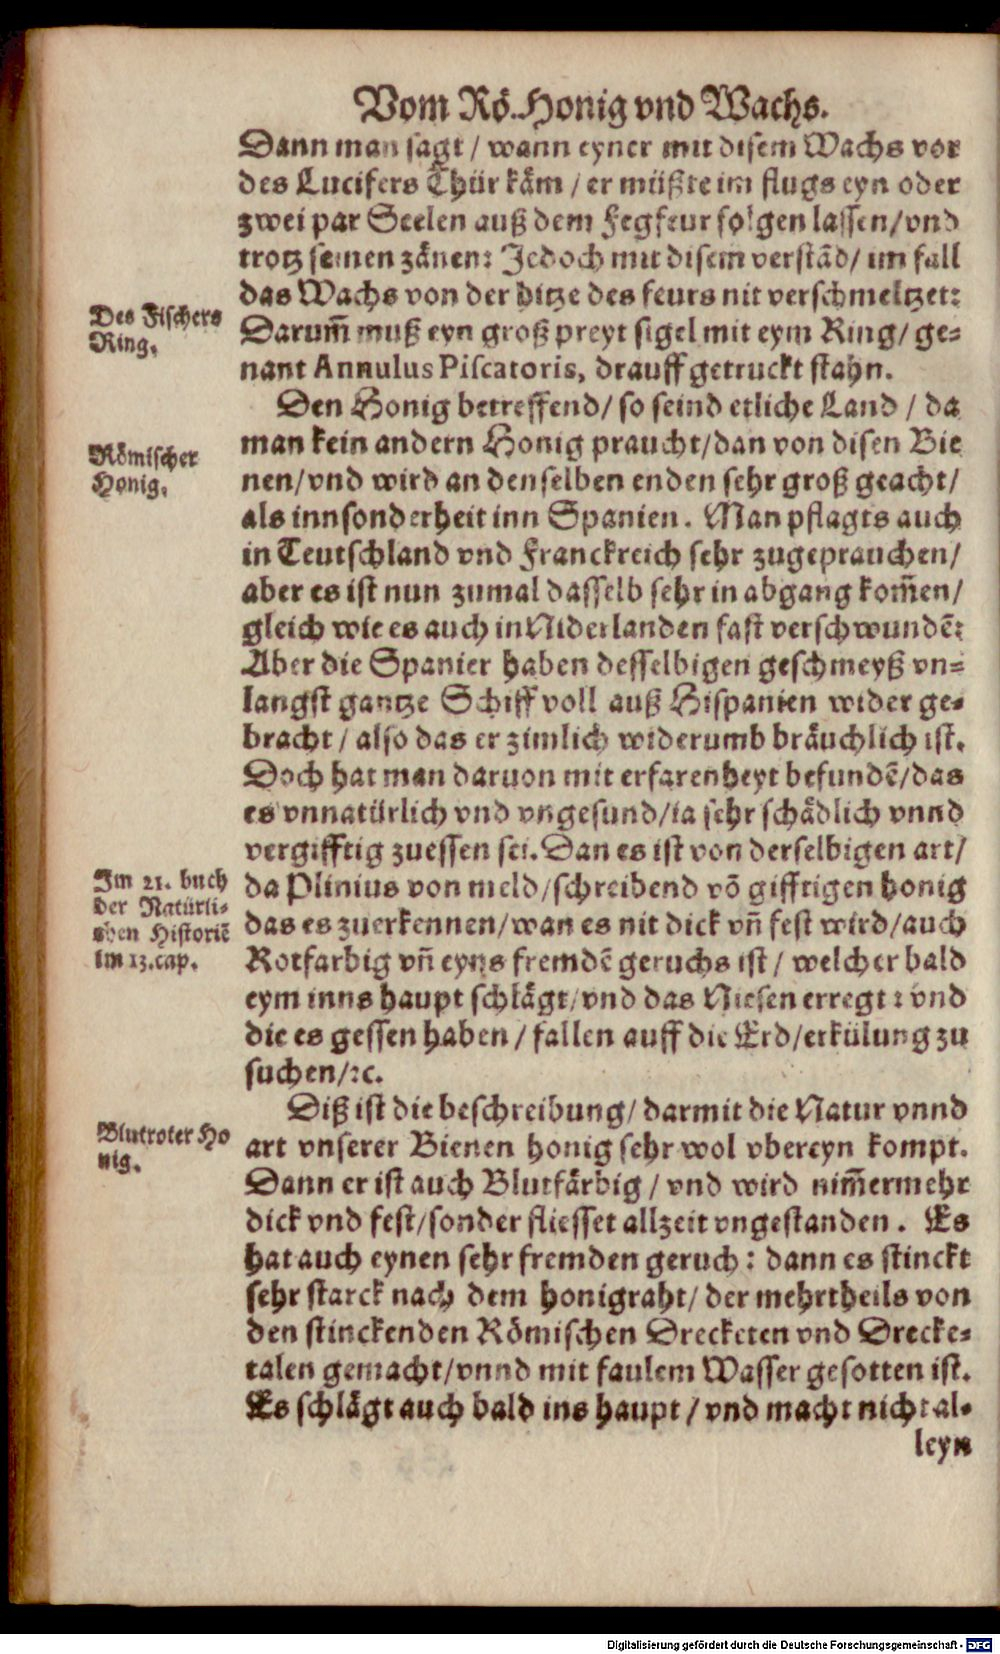 Vom Rö. Honig vnd Wachs.
Dann man sagt / wann eyner mit disem Wachs vor
des Lucifers Thür käm / er müßte im flugs eyn oder
zwei par Seelen auß dem Fegfeur folgen lassen / vnd
trotz seinen zänen: Jedoch mit disem verstãd / im fall
das Wachs von der hitze des feurs nit verschmeltzet:
Des Fischers
Ring.
Darum̃ muß eyn groß preyt sigel mit eym Ring / ge-
nant Annulus Piscatoris, drauff getruckt stahn.
Den Honig betreffend / so seind etliche Land / da
Römischer
Honig.
man kein andern Honig praucht / dan von disen Bie
nen / vnd wird an denselben enden sehr groß geacht /
als innsonderheit inn Spanien. Man pflagts auch
in Teutschland vnd Franckreich sehr zugeprauchen /
aber es ist nun zumal dasselb sehr in abgang kom̃en /
gleich wie es auch in Niderlanden fast verschwundẽ:
Aber die Spanier haben desselbigen geschmeyß vn-
langst gantze Schiff voll auß Hispanien wider ge-
bracht / also das er zimlich widerumb bräuchlich ist.
Doch hat man daruon mit erfarenheyt befundẽ / das
es vnnatürlich vnd vngesund / ia sehr schädlich vnnd
vergifftig zuessen sei. Dan es ist von derselbigen art /
Im 21. buch
der Natürli-
chen Historiẽ
im 13. cap.
da Plinius von meld / schreibend võ gifftigen honig
das es zuerkennen / wan es nit dick vñ fest wird / auch
Rotfarbig vñ eyns fremdẽ geruchs ist / welcher bald
eym inns haupt schlägt / vnd das Niesen erregt: vnd
die es gessen haben / fallen auff die Erd / erkülung zu
suchen / ꝛc.
Diß ist die beschreibung / darmit die Natur vnnd
Blutroter Ho
nig.
art vnserer Bienen honig sehr wol vbereyn kompt.
Dann er ist auch Blutfärbig / vnd wird nim̃ermehr
dick vnd fest / sonder fliesset allzeit vngestanden. Es
hat auch eynen sehr fremden geruch: dann es stinckt
sehr starck nach dem honigraht / der mehrtheils von
den stinckenden Römischen Drecketen vnd Drecke-
talen gemacht / vnnd mit faulem Wasser gesotten ist.
Es schlägt auch bald ins haupt / vnd macht nicht al-
leyn
Digitalisierung gefördert durch die Deutsche Forschungsgemeinschaft - DFG